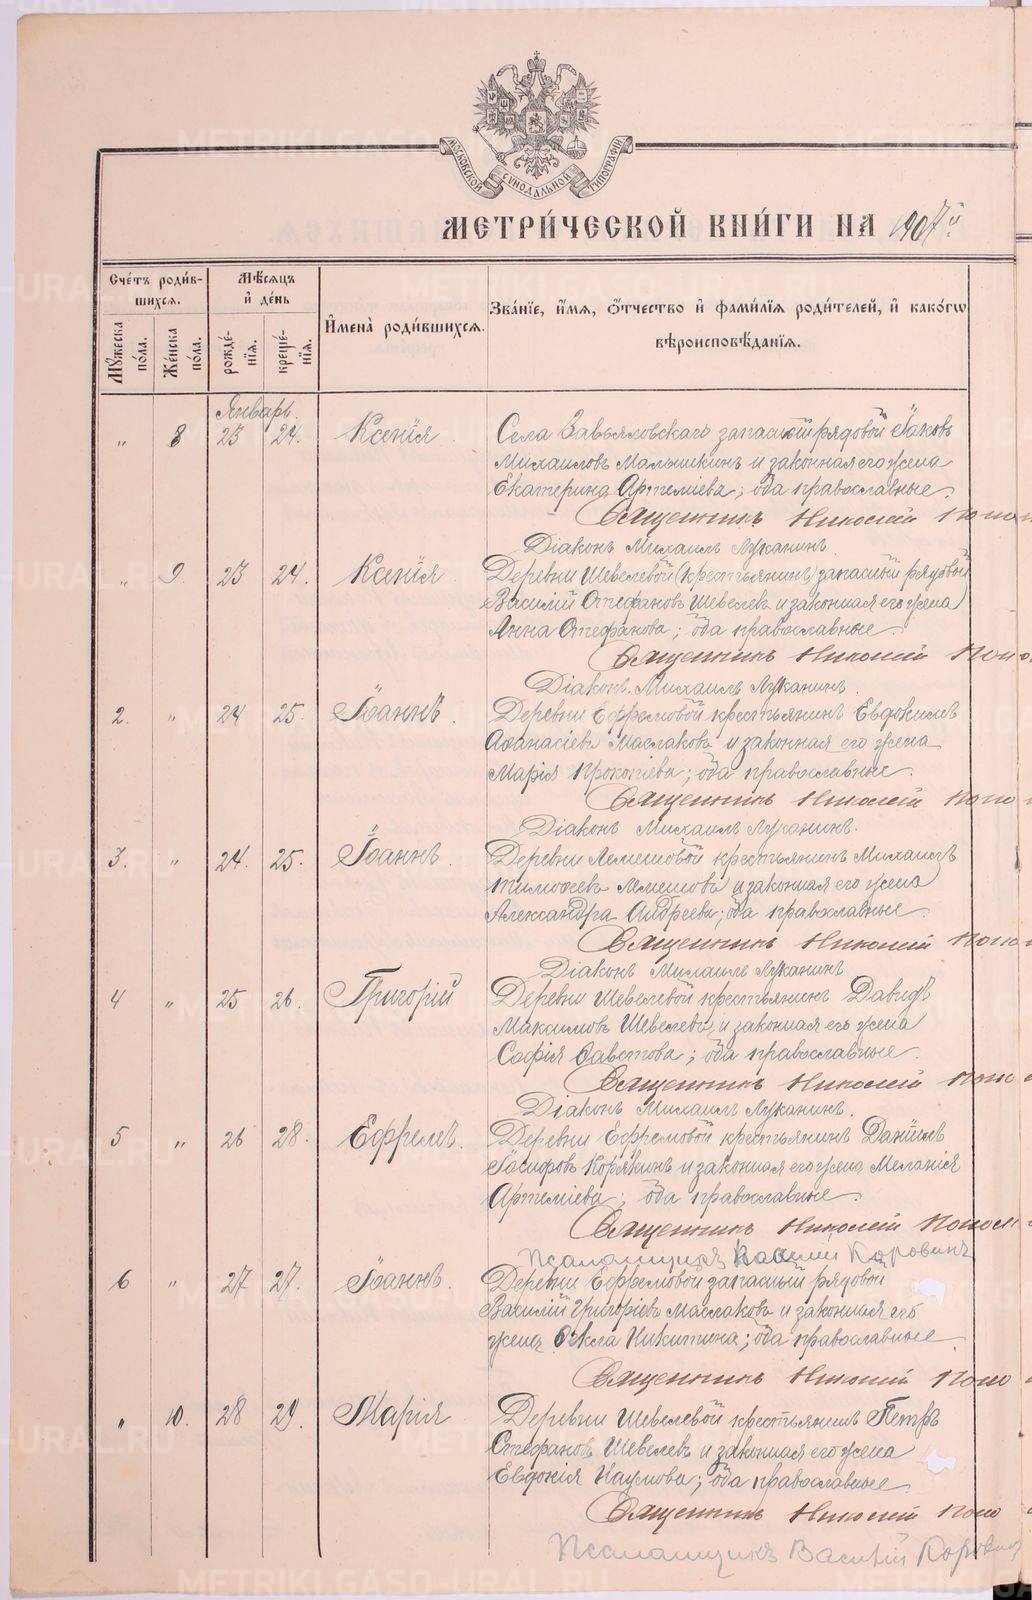 МОСКОВСКОЙ СѴНОДАЛЬНОЙ ТИПОГРАФІИ
МЕТРИ́ЧЕСКОЙ КНИ́ГИ НА 1907й
Сче́тъ роди́в-
шихся.
Мѣ́сяцъ
и҆ де́нь
Му́жеска по́ла.
Же́нска по́ла.
рожде́-
нїя.
креще́-
нїя.
И҆мена̀ роди́вшихся.
Зва́нїе, и҆́мя, ѻ҆́тчество и҆ фами́лїя роди́телей, и҆ како́гѡ
вѣроисповѣ́данїя.
Январь.
„ 8 23 24. Ксенія. Села Завьяловскаго запасный рядовой Іаковъ
Михаиловъ Малышкинъ и законная его жена
Екатерина Артемиева; оба православные.
Священникъ Николай
Діаконъ Михаилъ Луканинъ.
„ 9. 23 24. Ксенія. Деревни Шевелевой (крестьянинъ) запасный рядовой
Василій Стефановъ Шевелевъ и законная его жена
Анна Стефанова; оба православные.
Священникъ Николай
Діаконъ Михаилъ Луканинъ.
2. „ 24 25. Іоаннъ. Деревни Ефремовой крестьянинъ Евдокимъ
Аѳанасіевъ Маслаковъ и законная его жена
Марія Прокопіева; оба православные.
Священникъ Николай
Діаконъ Михаилъ Луканинъ.
3. „ 24. 25. Іоаннъ. Деревни Лемешовой крестьянинъ Михаилъ
Тимоѳеевъ Лемешовъ и законная его жена
Александра Андреева; оба православные.
Священникъ Николай
Діаконъ Михаилъ Луканинъ
4 „ 25 26. Григорій Деревни Шевелевой крестьянинъ Давидъ
Максимовъ Шевелевъ и законная его жена
Софія Савстова; оба православные.
Священникъ Николай
Діаконъ Михаилъ Луканинъ.
5 „ 26 28. Ефремъ. Деревни Ефремовой крестьянинъ Даніилъ
Іосифовъ Корякинъ и законная его жена Меланія
Артеміева; оба православные.
Священникъ Николай
Псаломщикъ Василій Коровинъ
6 „ 27 27. Іоаннъ. Деревни Ефремовой запасный рядовой
Василій Григоріевъ Маслаковъ и законная его
жена Ѳекла Никитина; оба православные.
Священникъ Николай
„ 10. 28 29. Марія Деревни Шевелевой крестьянинъ Петръ
Стефановъ Шевелевъ и законная его жена
Евдокія Наумова; оба православные.
Священникъ Николай
Псаломщикъ Василій Коровин
METRIKI.GASO-URAL.RU